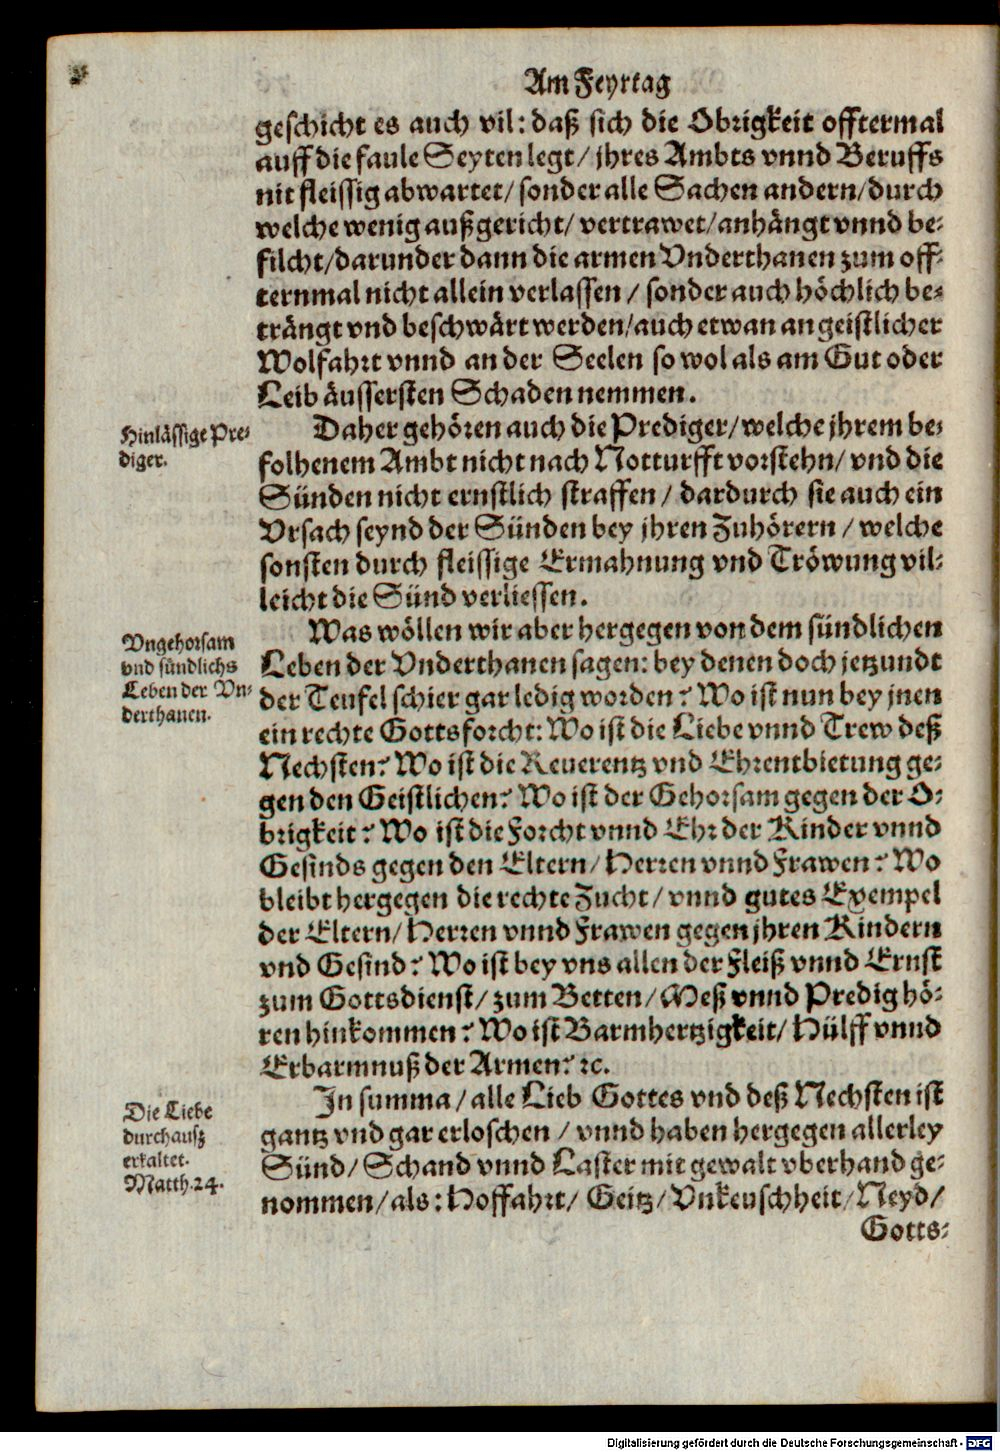 Am Feyrtag
geschicht es auch vil: daß sich die Obrigkeit offtermal
auff die faule Seyten legt/ jhres Ambts vnnd Beruffs
nit fleissig abwartet/ sonder alle Sachen andern/ durch
welche wenig außgericht/ vertrawet/ anhängt vnnd be-
filcht/ darunder dann die armen Vnderthanen zum off-
ternmal nicht allein verlassen / sonder auch höchlich be-
trängt vnd beschwärt werden/ auch etwan an geistlicher
Wolfahrt vnnd an der Seelen so wol als am Gut oder
Leib äussersten Schaden nemmen.
Hinlässige Pre-
diger.
Daher gehören auch die Prediger/ welche jhrem be-
folhenem Ambt nicht nach Notturfft vorstehn/ vnd die
Sünden nicht ernstlich straffen / dardurch sie auch ein
Vrsach seynd der Sünden bey jhren Zuhörern / welche
sonsten durch fleissige Ermahnung vnd Tröwung vil-
leicht die Sünd verliessen.
Vngehorsam
vnd sündlichs
Leben der Vn-
derthanen.
Was wöllen wir aber hergegen von dem sündlichen
Leben der Vnderthanen sagen: bey denen doch jetzundt
der Teufel schier gar ledig worden? Wo ist nun bey jnen
ein rechte Gottsforcht: Wo ist die Liebe vnnd Trew deß
Nechsten? Wo ist die Reuerentz vnd Ehrentbietung ge-
gen den Geistlichen? Wo ist der Gehorsam gegen der O-
brigkeit? Wo ist die Forcht vnnd Ehr der Kinder vnnd
Gesinds gegen den Eltern/ Herren vnnd Frawen? Wo
bleibt hergegen die rechte Zucht/ vnnd gutes Exempel
der Eltern/ Herren vnnd Frawen gegen jhren Kindern
vnd Gesind? Wo ist bey vns allen der Fleiß vnnd Ernst
zum Gottsdienst/ zum Betten/ Meß vnnd Predig hö-
ren hinkommen? Wo ist Barmhertzigkeit/ Hülff vnnd
Erbarmnuß der Armen? ꝛc.
Die Liebe
durchausz
erkaltet.
Matth.24.
In summa/ alle Lieb Gottes vnd deß Nechsten ist
gantz vnd gar erloschen / vnnd haben hergegen allerley
Sünd/ Schand vnnd Laster mit gewalt vberhand ge-
nommen/ als: Hoffahrt/ Geitz/ Vnkeuschheit/ Neyd/
Gotts-
Digitalisierung gefördert durch die Deutsche Forschungsgemeinschaft - DFG